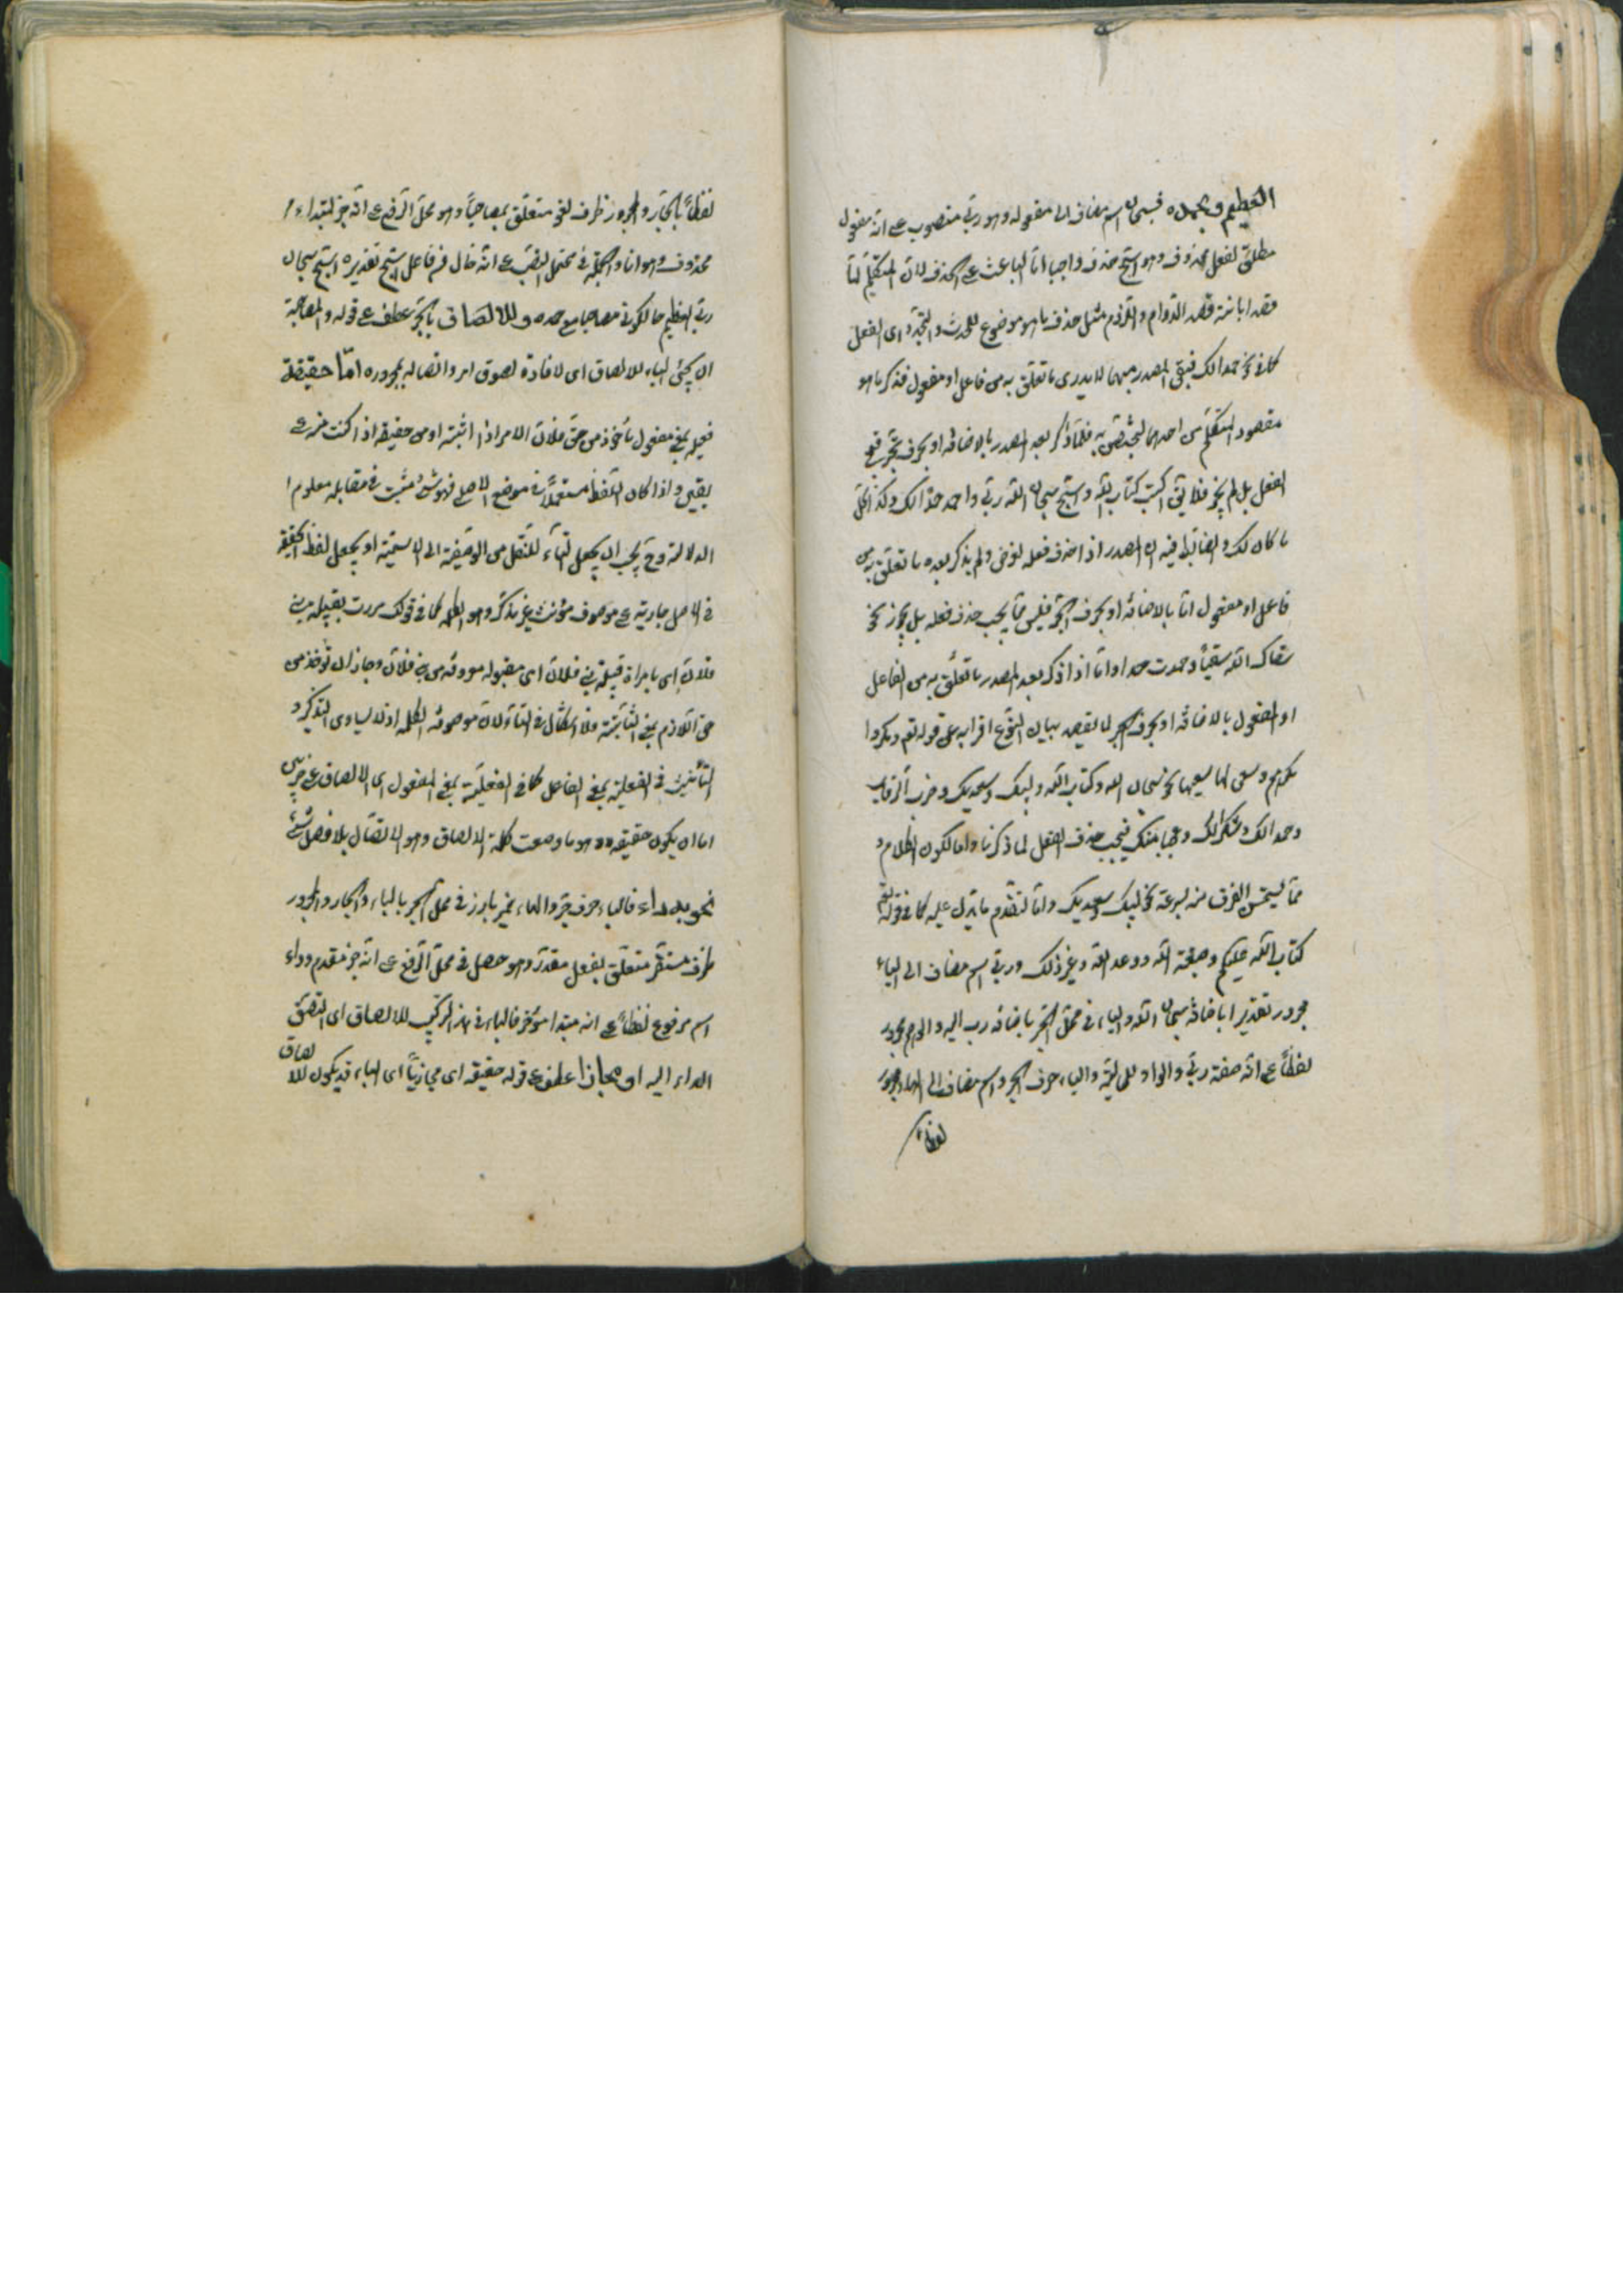 العظيم وبحمده فسبحان اسم مضاف الى مفعوله وهو ربي منصوب على انه مفعول
مطلق لفعل محذوف وهو اسبح حذف واجبا اما الباعث على الحذف فلان المتكلم لما
قصد ابانة قصد الدوام واللزوم مثل حذف ما هو موضوع للحدث والتجدد اى الفعل
كما فى نحو حمدا لك فبقى المصدر مبهما لا يدرى ما تعلق به من فاعل او مفعول فذكر ما هو
مقصود المتكلم من احدهما ليختص به فلما ذكر بعد المصدر بالاضافة او بحرف الجر قبح
الفعل بل لم يجز فلا يقى اكتب كتاب الله واسبح سبحان الله ربى واحمد حمدا لك وكذا كل
ما كان لك والضابط فيه ان المصدر اذا حذف فعله لغرض ولم يذكر بعده ما تعلق به من
فاعل او مفعول اما بالاضافة او بحرف الجر فليس مما يجب حذف فعله بل يجوز نحو
سقاك الله سقيا وحمدت حمدا واما اذا ذكر بعد المصدر ما تعلق به من الفاعل
او المفعول بالاضافة او بحرف الجر لا لقصد بيان النوع احترازا به عن قوله تعم ومكروا
مكرهم وسعى لها سعيها نحو سبحان الله وكتاب الله ولبيك وسعديك وضرب الرقاب
وحمدا لك وشكرا لك وعجبا منك فيجب حذف الفعل لما ذكرنا واما لكون الكلام و
مما يستحسن الفراغ منه لسرعة نحو لبيك وسعديك واما لتقدم ما يدل عليه كما فى قوله تعم
كتاب الله عليكم وصبغة الله ووعد الله وغير ذلك وربى اسم مضاف الى الياء
مجرور تقديرا باضافة سبحان الله والياء فى محل الجر باضافة رب اليه والعظيم مجرور
لفظا على انه صفة ربى والواو للحالية والباء حرف الجر واسم مضاف الى الهاء مجرور
لفظا
لفظا بالجار والمجرور ظرف لغو متعلق بمصاحبا وهو محل الرفع على انه خبر لمبتداء
محذوف وهو انا والجملة فى محل النصب على انه حال من فاعل اسبح تقديره اسبح سبحان
ربى العظيم حالكونى مصاحبا مع حمده وللالصاق بالجر عطف على قوله والمصاحبة
ان يجئ الباء للالصاق اى لافادة لصوق امر واتصاله بمجروره اما حقيقة
فعيلة بمعنى مفعول مأخوذ من حق فلان الامر اذا اثبته او من حقيقة اذا كنت منه على
يقين واذا كان اللفظ مستعملا فى موضع الاصلى فهو شئ مثبت فى مقابله معلوم
الدلالة وح يجب ان يجعل التاء للنقل من الوصفية الى الاسمية او يجعل لفظ الحقيقة
فى الاصل جارية على موصوف مؤنث غير مذكر وهو الكلمة كما فى قولك مررت بقبيلة بنى
فلان اى بامراة قبيلة بنى فلان اى مقبولة معروفة من بنى فلان وجاز ان تؤخذ من
حق اللازم بمعنى الثابتة فلا اشكال فى التاء لان موصوفه الكلمة اذ لا يساوى التذكير و
التأنيث فى الفعيلة بمعنى الفاعل كما فى الفعيلة بمعنى المفعول اى الالصاق على ضربين
اما ان يكون حقيقة وهو ما وضعت كلمة الالصاق وهو الاتصال بلا فصل شئ
نحو به داء فالباء حرف جر والهاء ضمير بارز فى محل الجر بالباء والجار والمجرور
ظرف مستقر متعلق بفعل مقدر وهو حصل فى محل الرفع على انه خبر مقدم وداء
اسم مرفوع لفظا على انه مبتدا مؤخر فالباء فى هذا التركيب للالصاق اى التصق
الداء اليه او مجازا عطف على قوله حقيقة اى مجازيا اى الباء قد يكون للا
لصاق